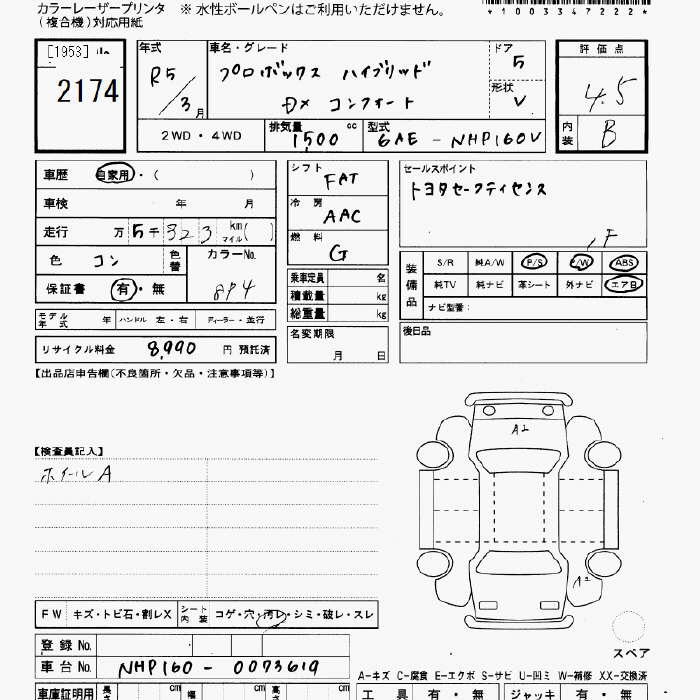 カラーレーザープリンタ ※ 水性ボールペンはご利用いただけません。
(複合機)対応用紙
*1003347222*
[1953]
2174
年式 R5/3月
車名・グレード プロボックス ハイブリッド
DX コンフォート
ドア 5
形状 V
2WD・4WD
排気量 1,500 cc
型式 6AE - NHP160V
評価点
4.5
内装 B
車歴 自家用・( )
車検 年 月
走行 万 5千 323 km マイル( )
色 コン 色替 カラーNo. 8P4
保証書 有・無
モデル年式 年 ハンドル 左・右 ディーラー・並行
リサイクル料金 8,990 円 預託済
シフト FAT
冷房 AAC
燃料 G
乗車定員 名
積載量 kg
総重量 kg
名変期限
月 日
セールスポイント
トヨタセーフティセンス
装備品
S/R 純A/W P/S P/W ABS
純TV 純ナビ 革シート 外ナビ エアB
ナビ型番:
後日品
【出品店申告欄(不良箇所・欠品・注意事項等)】
【検査員記入】
ホイールA
A1
A2
スペア
FW キズ・トビ石・割レX シート内装 コゲ・穴・汚レ・シミ・破レ・スレ
登録 No.
車台 No. NHP160 - 0073619
A-キズ C-腐食 E-エクボ S-サビ U-凹ミ W-補修 XX-交換済
車庫証明用 長さ cm 幅 cm 高さ cm
工具 有・無 ジャッキ 有・無